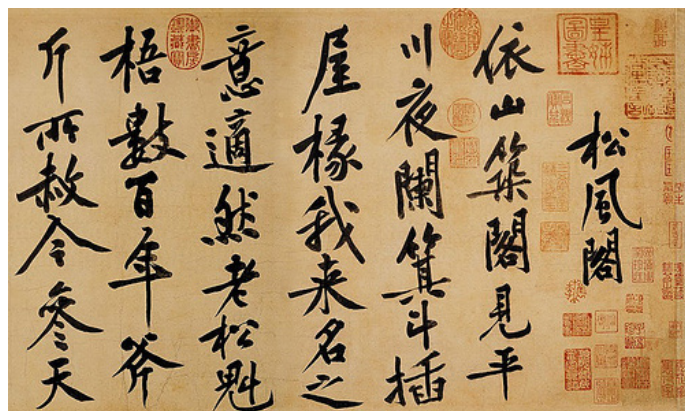 皇姊圖書
松風閣
依山築閣見平
川夜闌箕斗插
屋椽我来名之
意適然老松魁
梧數百年斧
斤所赦今參天